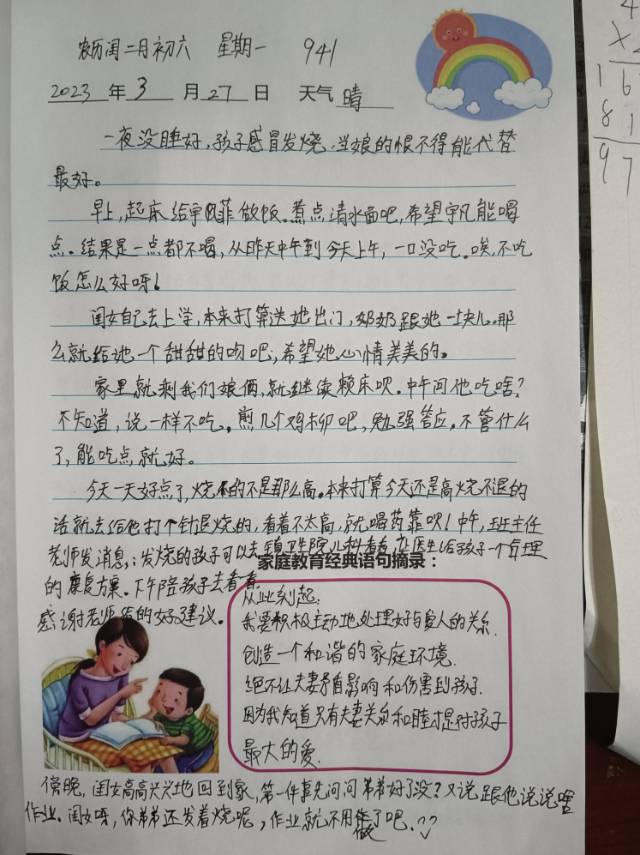 农历闰二月初六 星期一 941
2023 年 3 月 27 日 天气 晴
一夜没睡好,孩子感冒发烧,当娘的恨不得能代替
最好。
早上,起床给宇凡菲做饭。煮点清水面吧,希望宇凡能喝
点。结果是一点都不喝,从昨天中午到今天上午,一口没吃。唉,不吃
饭怎么好呀!
闺女自己去上学,本来打算送她出门,奶奶跟她一块儿。那
么就给她一个甜甜的吻吧,希望她心情美美的。
家里就剩我们娘俩,就继续赖床呗。中午问他吃啥?
不知道,说一样不吃。煎几个鸡柳吧,勉强答应。不管什么
了,能吃点就好。
今天一天好点了,烧的不是那么高。本来打算今天还是高烧不退的
话就去给他打个针退烧的,看着不太高,就喝药靠呗!中午,班主任
老师发消息,:发烧的孩子可以去镇卫生院儿科看看,让医生给孩子一个合理
的康复方案。下午陪孩子去看看。
感谢老师的好建议。
家庭教育经典语句摘录:
从此刻起:
我要积极主动地处理好与爱人的关系.
创造一个和谐的家庭环境.
绝不让夫妻矛盾影响和伤害到孩子.
因为我知道只有夫妻关系和睦才是对孩子
最大的爱.
傍晚,闺女高高兴兴地回到家,第一件事先问问弟弟好了没?又说跟他说说
作业。闺女呀,你弟弟还发着烧呢,作业就不用做了吧.
4
X
1 6
8 1
9 7